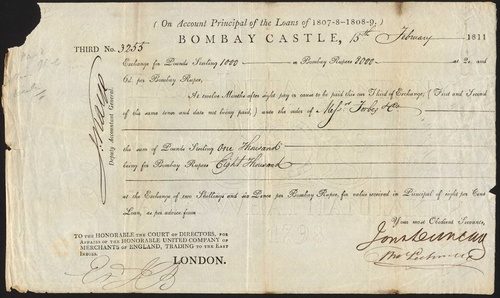 (On Account Principal of the Loans of 1807-8-1808-9,)
BOMBAY CASTLE, 15th February 1811
THIRD No. 3255
Exchange for Pounds Sterling 1000 a Bombay Rupees 8000 at 2s. and
6d. per Bombay Rupee,
At twelve Months after sight pay or cause to be paid this our Third of Exchange; (First and Second
of this same tenor and date not being paid,) unto the order of Messrs. Forbes & Co
the sum of Pounds Sterling One Thousand
being for Bombay Rupees Eight Thousand
at the Exchange of two Shillings and six Pence per Bombay Rupee, for value received in Principal of eight per Cent
Loan, as per advice from
Your most Obedient Servants,
Jon. Duncan
Deputy Accountant General.
TO THE HONORABLE THE COURT OF DIRECTORS, FOR
AFFAIRS OF THE HONORABLE UNITED COMPANY OF
MERCHANTS OF ENGLAND, TRADING TO THE EAST
INDIES.
LONDON.